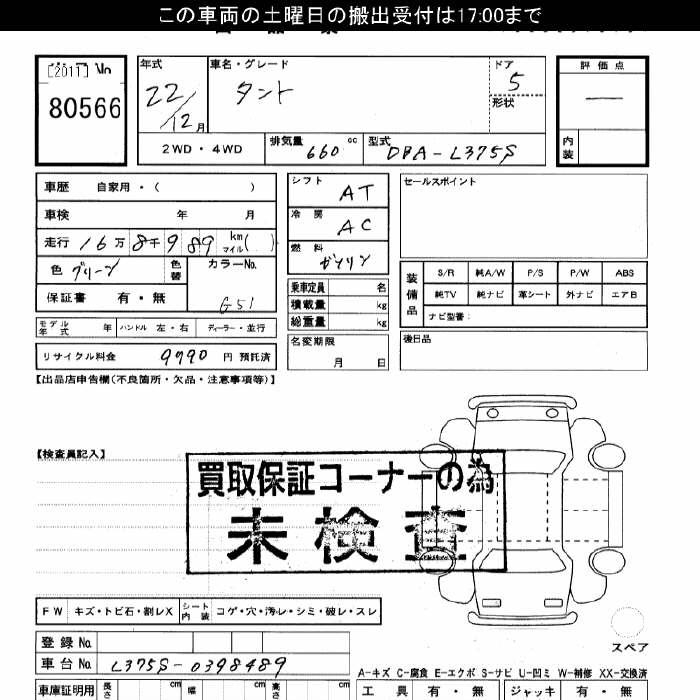 この車両の土曜日の搬出受付は17:00まで
[2011] No
80566
年式
22/12月
車名・グレード
タント
ドア
5
形状
評価点
—
内装
2WD・4WD
排気量 660 cc
型式 DBA-L375S
車歴 自家用・( )
車検 年 月
走行 16万8千989 km マイル( )
色 グリーン 色替
カラーNo. G51
保証書 有・無
シフト AT
冷房 AC
燃料 ガソリン
乗車定員 名
積載量 kg
総重量 kg
セールスポイント
装備品
S/R 純A/W P/S P/W ABS
純TV 純ナビ 革シート 外ナビ エアB
ナビ型番:
モデル年式 年 ハンドル 左・右 ディーラー・並行
リサイクル料金 9790 円 預託済
名変期限
月 日
後日品
【出品店申告欄(不良箇所・欠品・注意事項等)】
【検査員記入】
買取保証コーナーの為
未検査
FW キズ・トビ石・割レX シート内装 コゲ・穴・汚レ・シミ・破レ・スレ
スペア
登録No.
車台No. L375S-0398489
A-キズ C-腐食 E-エクボ S-サビ U-凹ミ W-補修 XX-交換済
車庫証明用 長さ cm 幅 cm 高さ cm
工具 有・無 ジャッキ 有・無